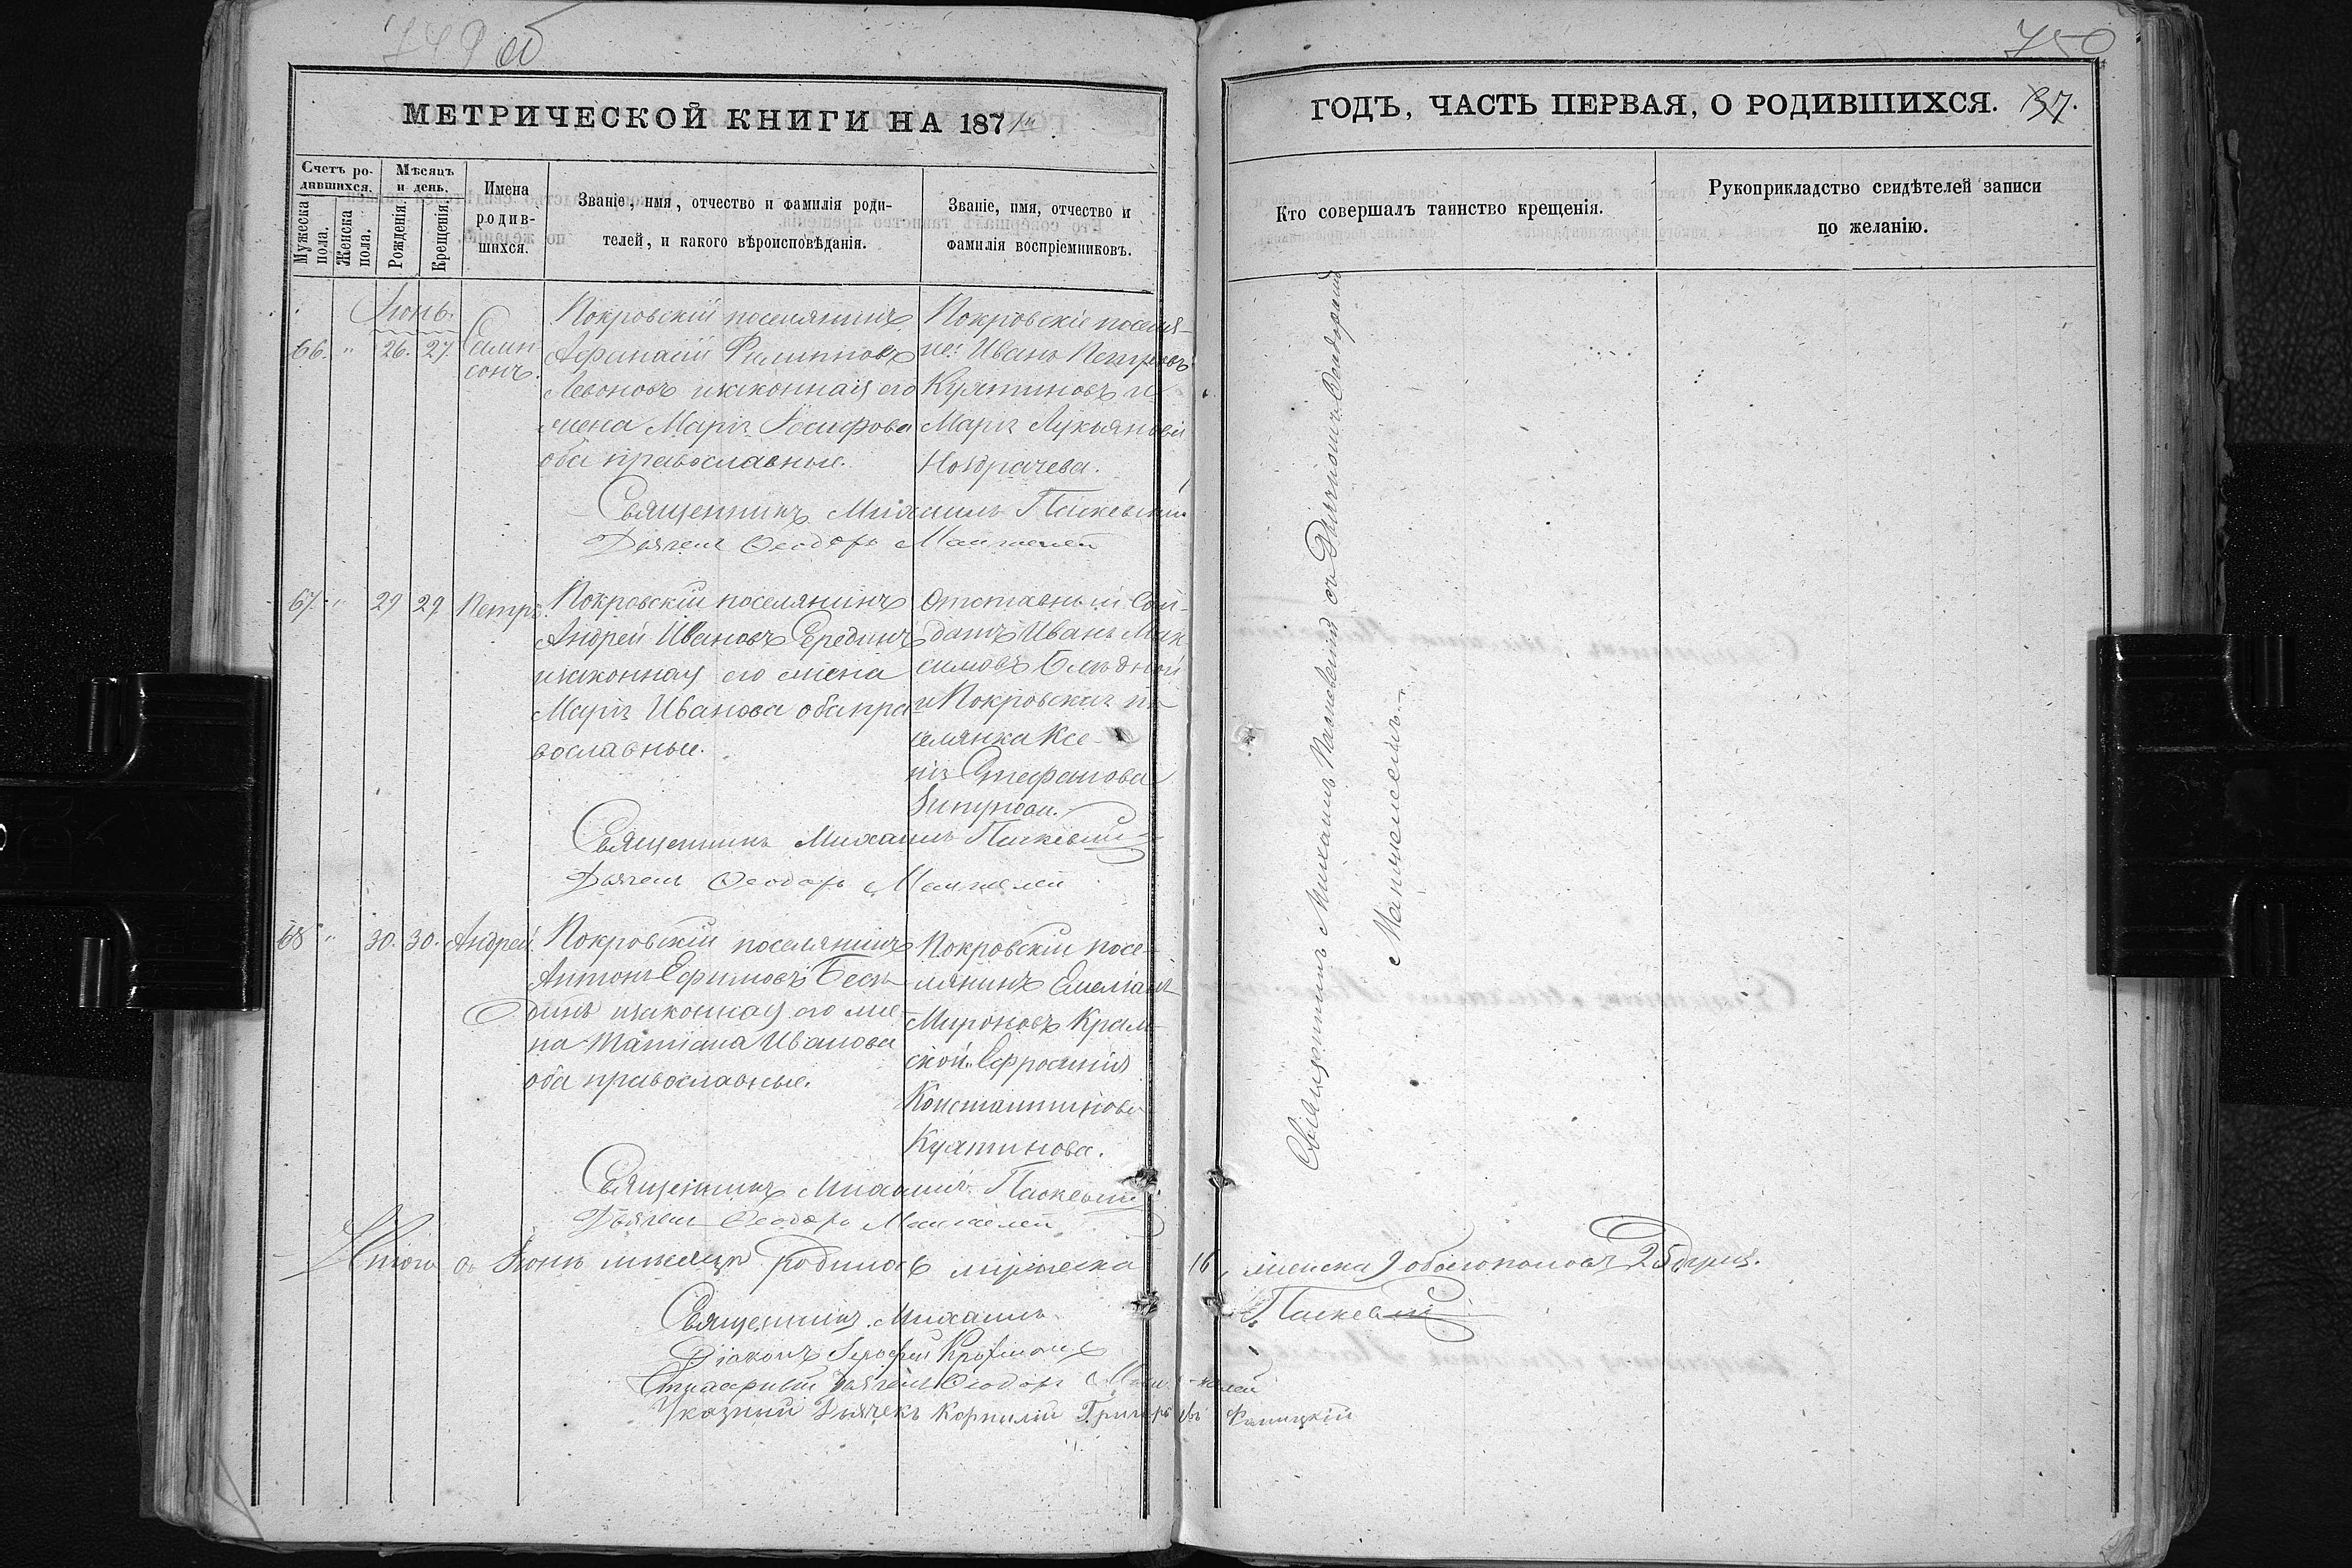 749 об
МЕТРИЧЕСКОЙ КНИГИ НА 1871й
Счетъ ро-
дившихся.
Мужеска
пола.
Женска
пола.
Мѣсяцъ
и день.
Рожденія.
Крещенія.
Имена
родив-
шихся.
Званіе, имя, отчество и фамилія роди-
телей, и какого вѣроисповѣданія.
Званіе, имя, отчество и
фамилія воспріемниковъ.
Іюнь.
66. " 26. 27.
Самп-
сонъ.
Покровскій поселянинъ
Афанасій Филиповъ
Левоновъ и законная его
жена Марія Іосифова
оба православные.
Покровскіе поселя-
не: Иванъ Петровъ
Куятиновъ и
Марія Лукьянова
Ноздрачева.
Священникъ Михаилъ
Дьячекъ Ѳеодоръ
67. " 29 29 Петръ.
Покровскій поселянинъ
Андрей Ивановъ Середин
и законная его жена
Марія Иванова оба пра-
вославные.
Отставный Сол-
датъ Иванъ Мак-
симовъ
и Покровская по-
селянка Ксе-
нія Стефанова
Священникъ Михаилъ
Дьячекъ Ѳеодоръ
68 " 30. 30. Андрей.
Покровскій поселянинъ
Антонъ Ефимовъ
и законная его же-
на Татіана Иванова
оба православные.
Покровскій посе-
лянинъ Емеліанъ
Мироновъ
Ефросинія
Константинова
Куятинова.
Священникъ Михаилъ
Дьячекъ Ѳеодоръ
Итого въ Іюнѣ мѣсяцѣ родилось мужеска 16, женска 9 обоего пола 25 душъ.
Священникъ Михаилъ
Діаконъ
Дьячекъ Ѳеодоръ
Указный Дьячекъ Корнилій Григорьевъ
750
ГОДЪ, ЧАСТЬ ПЕРВАЯ, О РОДИВШИХСЯ. 137.
Кто совершалъ таинство крещенія.
Рукоприкладство свидѣтелей записи
по желанію.
Священникъ Михаилъ съ Дьячкомъ Ѳеодоромъ